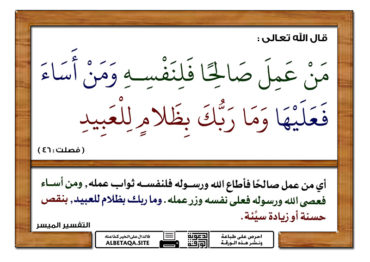 قال الله تعالى :
مَنْ عَمِلَ صَالِحًا فَلِنَفْسِهِ وَمَنْ أَسَاءَ
فَعَلَيْهَا وَمَا رَبُّكَ بِظَلَّامٍ لِلْعَبِيدِ
( فصلت : ٤٦ )
أي من عمل صالحًا فأطاع الله ورسوله فلنفسه ثواب عمله , ومن أساء
فعصى الله ورسوله فعلى نفسه وزر عمله . وما ربك بظلام للعبيد , بنقص
حسنة أو زيادة سيِّئة .
التفسير الميسر
احرص على طباعة
ونشر هذه الورقة
فالدال على الخير كفاعله
ALBETAQA.SITE